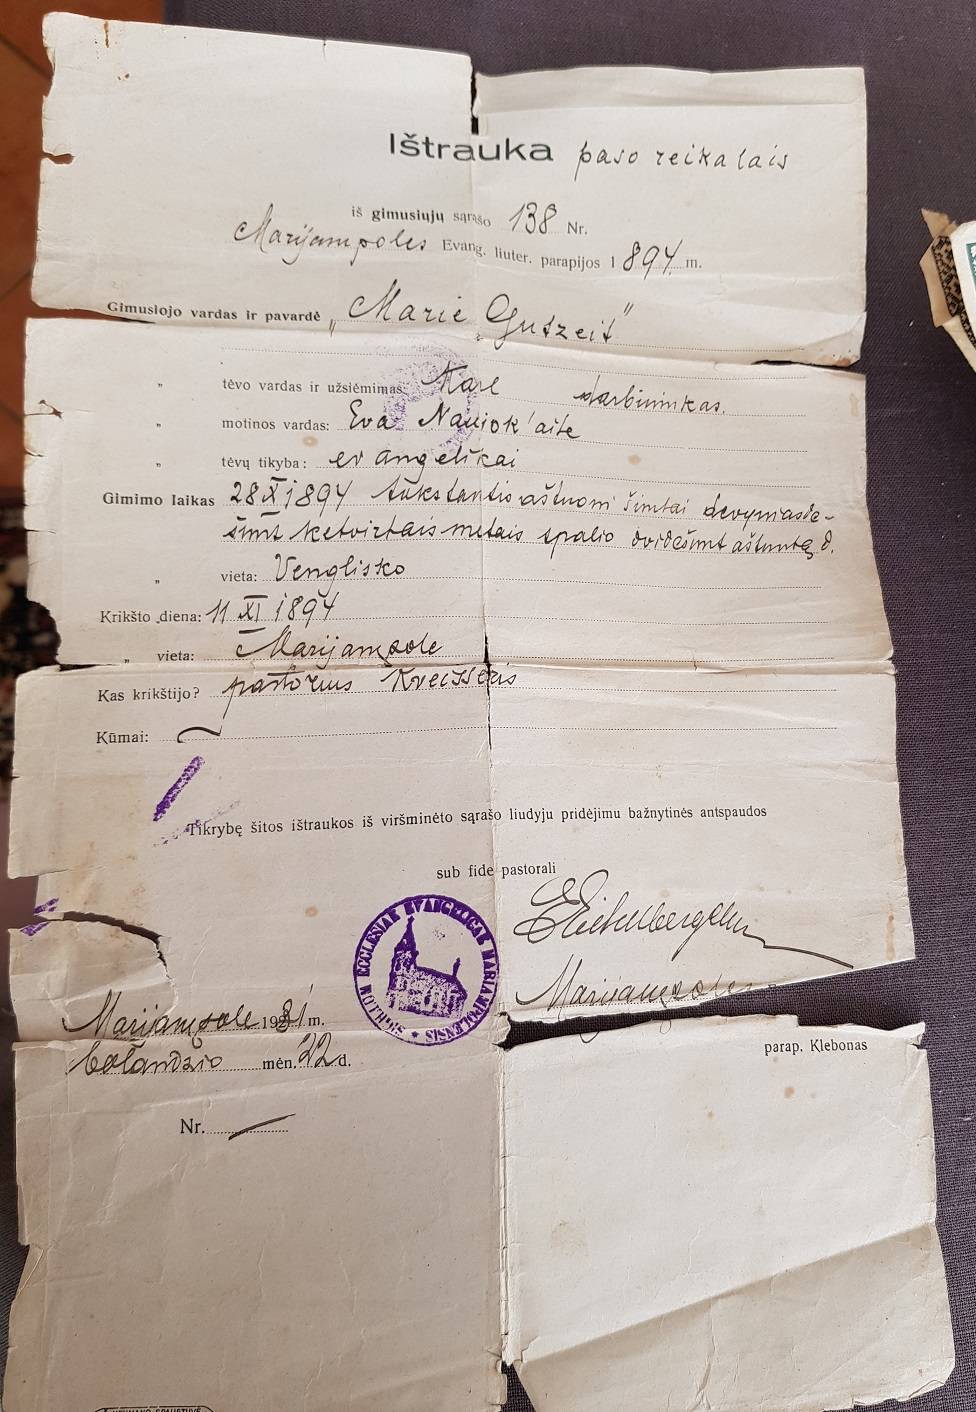 Ištrauka paso reikalais
iš gimusiųjų sąrašo 138 Nr.
Marijampolės Evang. liuter. parapijos 1894 m.
Gimusiojo vardas ir pavardė „Marie Gutzeit"
„ tėvo vardas ir užsiėmimas: Karl darbininkas.
„ motinos vardas: Eva Naujok'aitė
„ tėvų tikyba: evangelikai
Gimimo laikas 28 X 1894 tūkstantis aštuoni šimtai devyniasde-
šimt ketvirtais metais spalio dvidešimt aštuntą d.
„ vieta: Venglisko
Krikšto diena: 11 XI 1894
„ vieta: Marijampole
Kas krikštijo? pastorius Kreisseris
Kūmai:
Tikrybę šitos ištraukos iš viršminėto sąrašo liudyju pridėjimu bažnytinės antspaudos
sub fide pastorali
SIGILLUM ECCLESIAE EVANGELICAE MARIAMPOLENSIS
Marijampolės
Marijampole 1931 m.
parap. Klebonas
balandžio mėn. 22 d.
Nr.